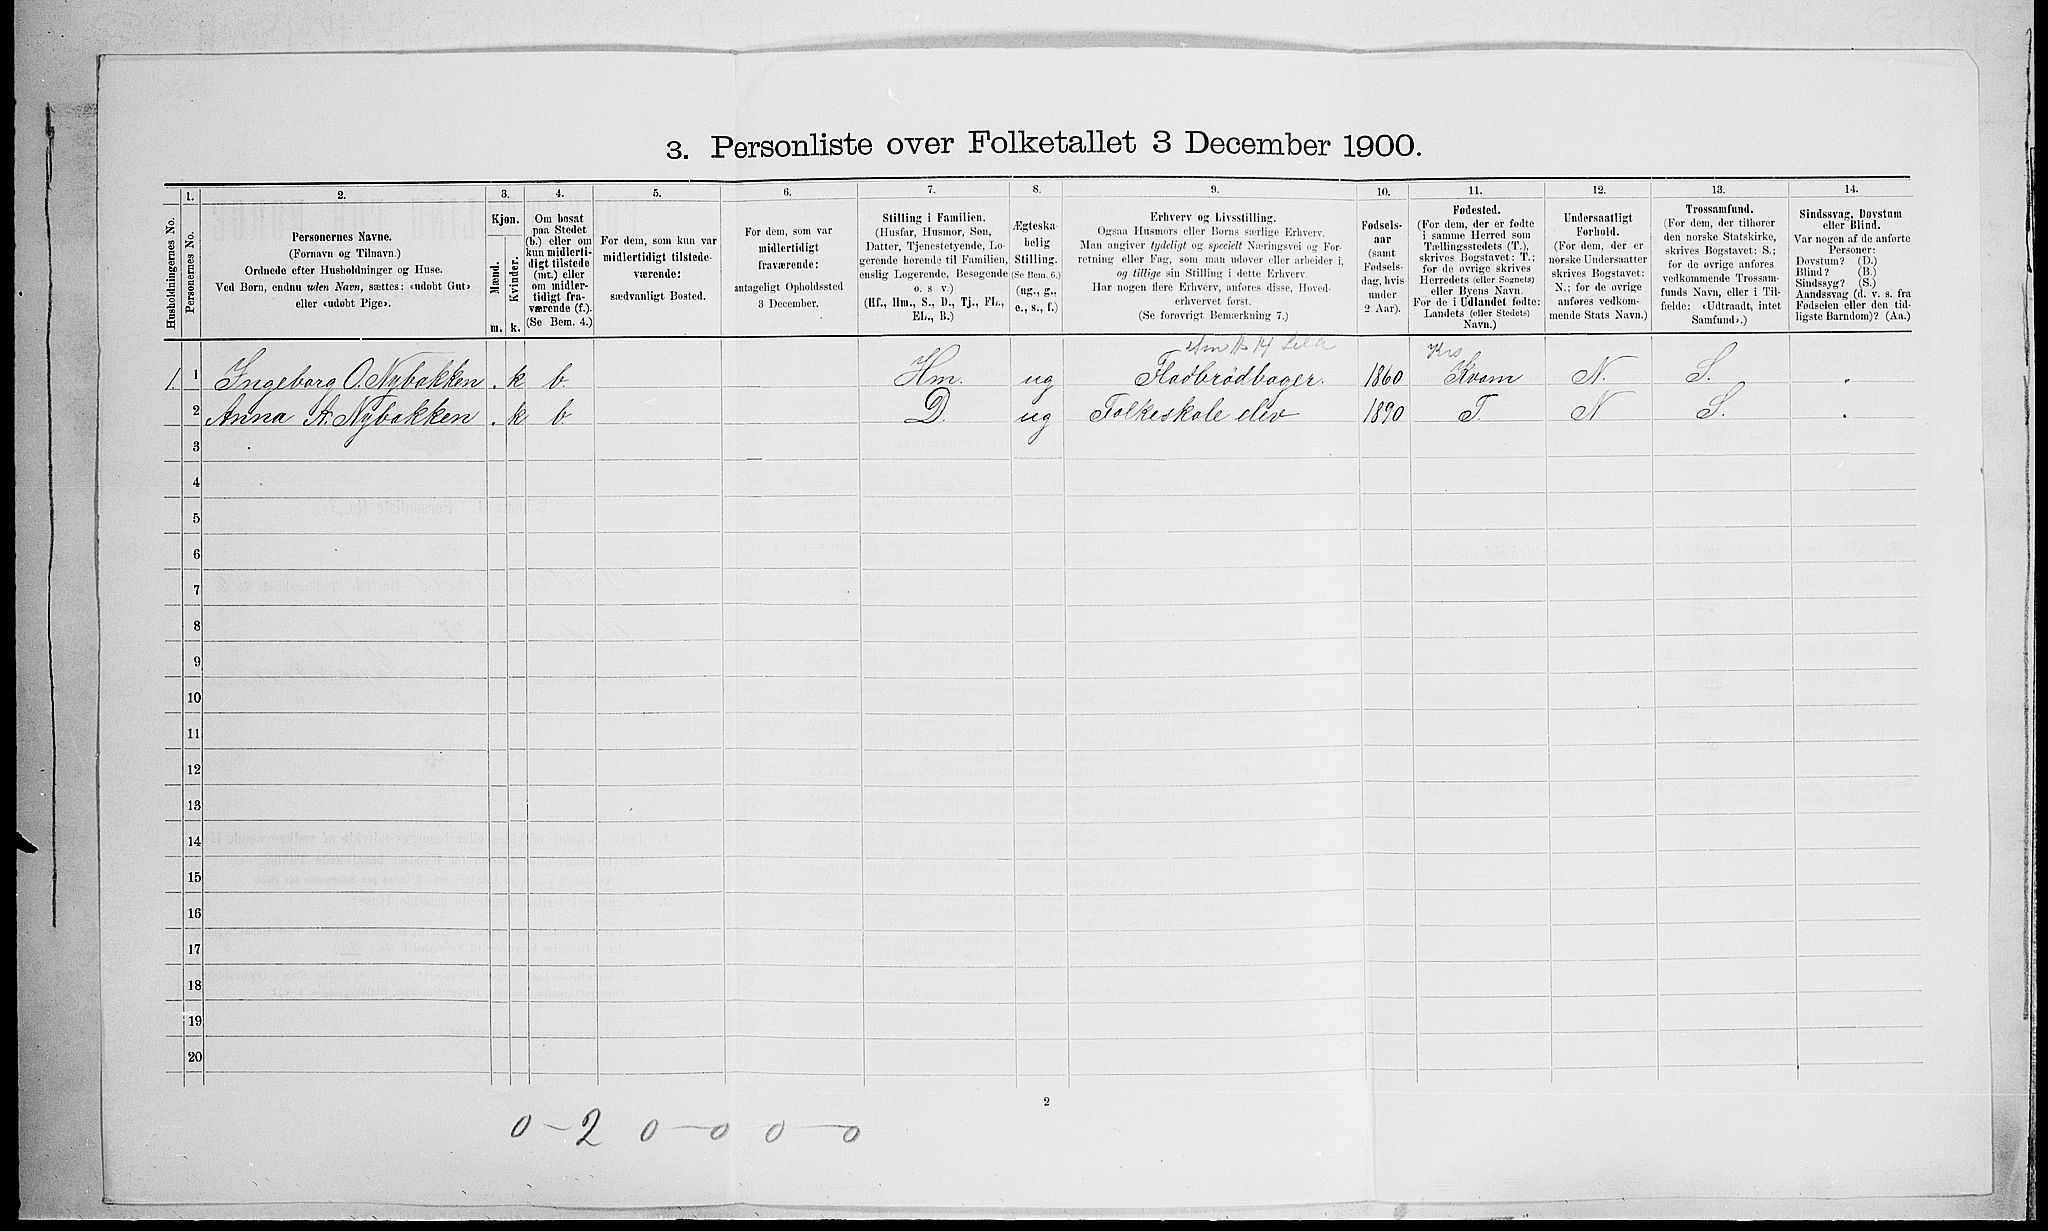 3. Personliste over Folketallet 3 December 1900.
1. 2. 3. 4. 5. 6. 7. 8. 9. 10. 11. 12. 13. 14.
Husholdningernes No.
Personernes No.
Personernes Navne.
(Fornavn og Tilnavn.)
Ordnede efter Husholdninger og Huse.
Ved Børn, endnu uden Navn, sættes: «udobt Gut»
eller «udobt Pige».
Kjøn.
Mænd.
Kvinder.
m. k.
Om bosat
paa Stedet
(b.) eller om
kun midler-
tidigt tilstede
(mt.) eller
om midler-
tidigt fra-
værende (f.).
(Se Bem. 4.)
For dem, som kun var
midlertidigt tilstede-
værende:
sædvanligt Bosted.
For dem, som var
midlertidigt
fraværende:
antageligt Opholdssted
3 December.
Stilling i Familien.
(Husfar, Husmor, Søn,
Datter, Tjenestetyende, Lo-
gerende hørende til Familien,
enslig Logerende, Besøgende
o. s. v.)
(Hf., Hm., S., D., Tj., FL.,
EL., B.)
Ægteska-
belig
Stilling.
(Se Bem. 6.)
(ug., g.,
e., s., f.)
Erhverv og Livsstilling.
Ogsaa Husmors eller Børns særlige Erhverv.
Man angiver tydeligt og specielt Næringsvei og For-
retning eller Fag, som man udøver eller arbeider i,
og tillige sin Stilling i dette Erhverv.
Har nogen flere Erhverv, anføres disse, Hoved-
erhvervet først.
(Se forøvrigt Bemærkning 7.)
Fødsels-
aar
(samt
Fødsels-
dag, hvis
under
2 Aar).
Fødested.
(For dem, der er fødte
i samme Herred som
Tællingsstedets (T.),
skrives Bogstavet: T.;
for de øvrige skrives
Herredets (eller Sognets)
eller Byens Navn.
For de i Udlandet fødte:
Landets (eller Stedets)
Navn.)
Undersaatligt
Forhold.
(For dem, der er
norske Undersaatter
skrives Bogstavet:
N.; for de øvrige
anføres vedkom-
mende Stats Navn.)
Trossamfund.
(For dem, der tilhører
den norske Statskirke,
skrives Bogstavet: S.;
for de øvrige anføres
vedkommende Trossam-
funds Navn, eller i Til-
fælde: «Udtraadt, intet
Samfund».)
Sindssvag, Døvstum
eller Blind.
Var nogen af de anførte
Personer:
Døvstum? (D.)
Blind? (B.)
Sindssyg? (S.)
Aandssvag (d. v. s. fra
Fødselen eller den tid-
ligste Barndom)? (Aa.)
1. 1 Ingeborg O. Nybakken . k b. Hm. ug Fladbrødbager. 1860 Kvam N. S. .
2 Anna A. Nybakken . k b D. ug Folkeskole elev 1890 T. N S. .
3
4
5
6
7
8
9
10
11
12
13
14
15
16
17
18
19
20
2
0 - 2 0 - 0 0 - 0